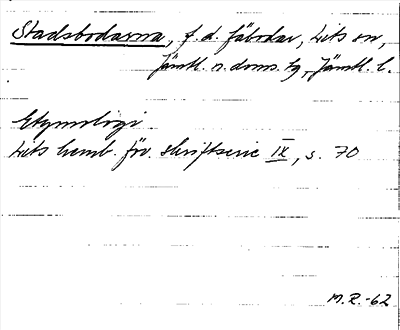 Stadsbodarna, f.d. fäbodar, Lits sn,
Jämtl. n. doms. tg, Jämtl. l.
Etymologi
Lits hemb. för. skriftserie IX, s. 70
M.R.-62